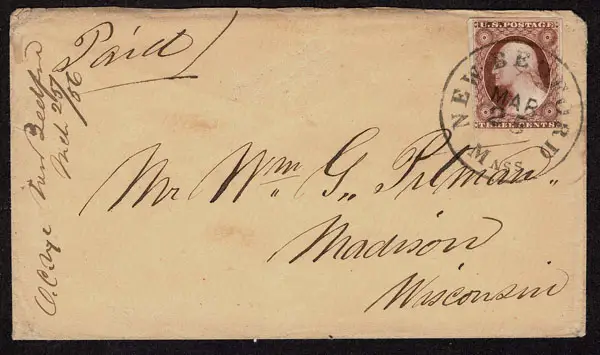 Paid
New Bedford
Mch 25th
/56
U.S. POSTAGE
THREE CENTS
NEW BEDFORD
MAR
25
MASS
Mr Wm G. Pitman.
Madison
Wisconsin